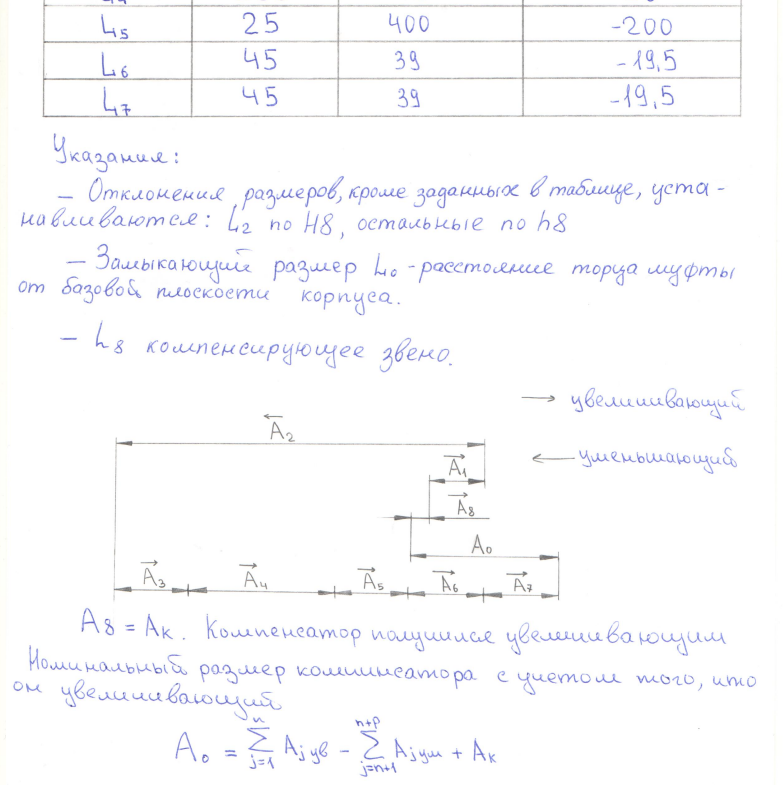 L5 25 400 -200
L6 45 39 -19,5
L7 45 39 -19,5
Указания:
— Отклонения размеров, кроме заданных в таблице, уста-
навливаются: L2 по H8, остальные по h8
— Замыкающий размер L0 - расстояние торца муфты
от базовой плоскости корпуса.
— L8 компенсирующее звено.
→ увеличивающий
A2
← уменьшающий
A1
A8
A0
A3 A4 A5 A6 A7
A8 = Aк. Компенсатор получился увеличивающим
Номинальный размер компинсатора с учетом того, что
он увеличивающий
A0 = n∑j=1 Aj ув − n+p∑j=n+1 Aj ум + Aк